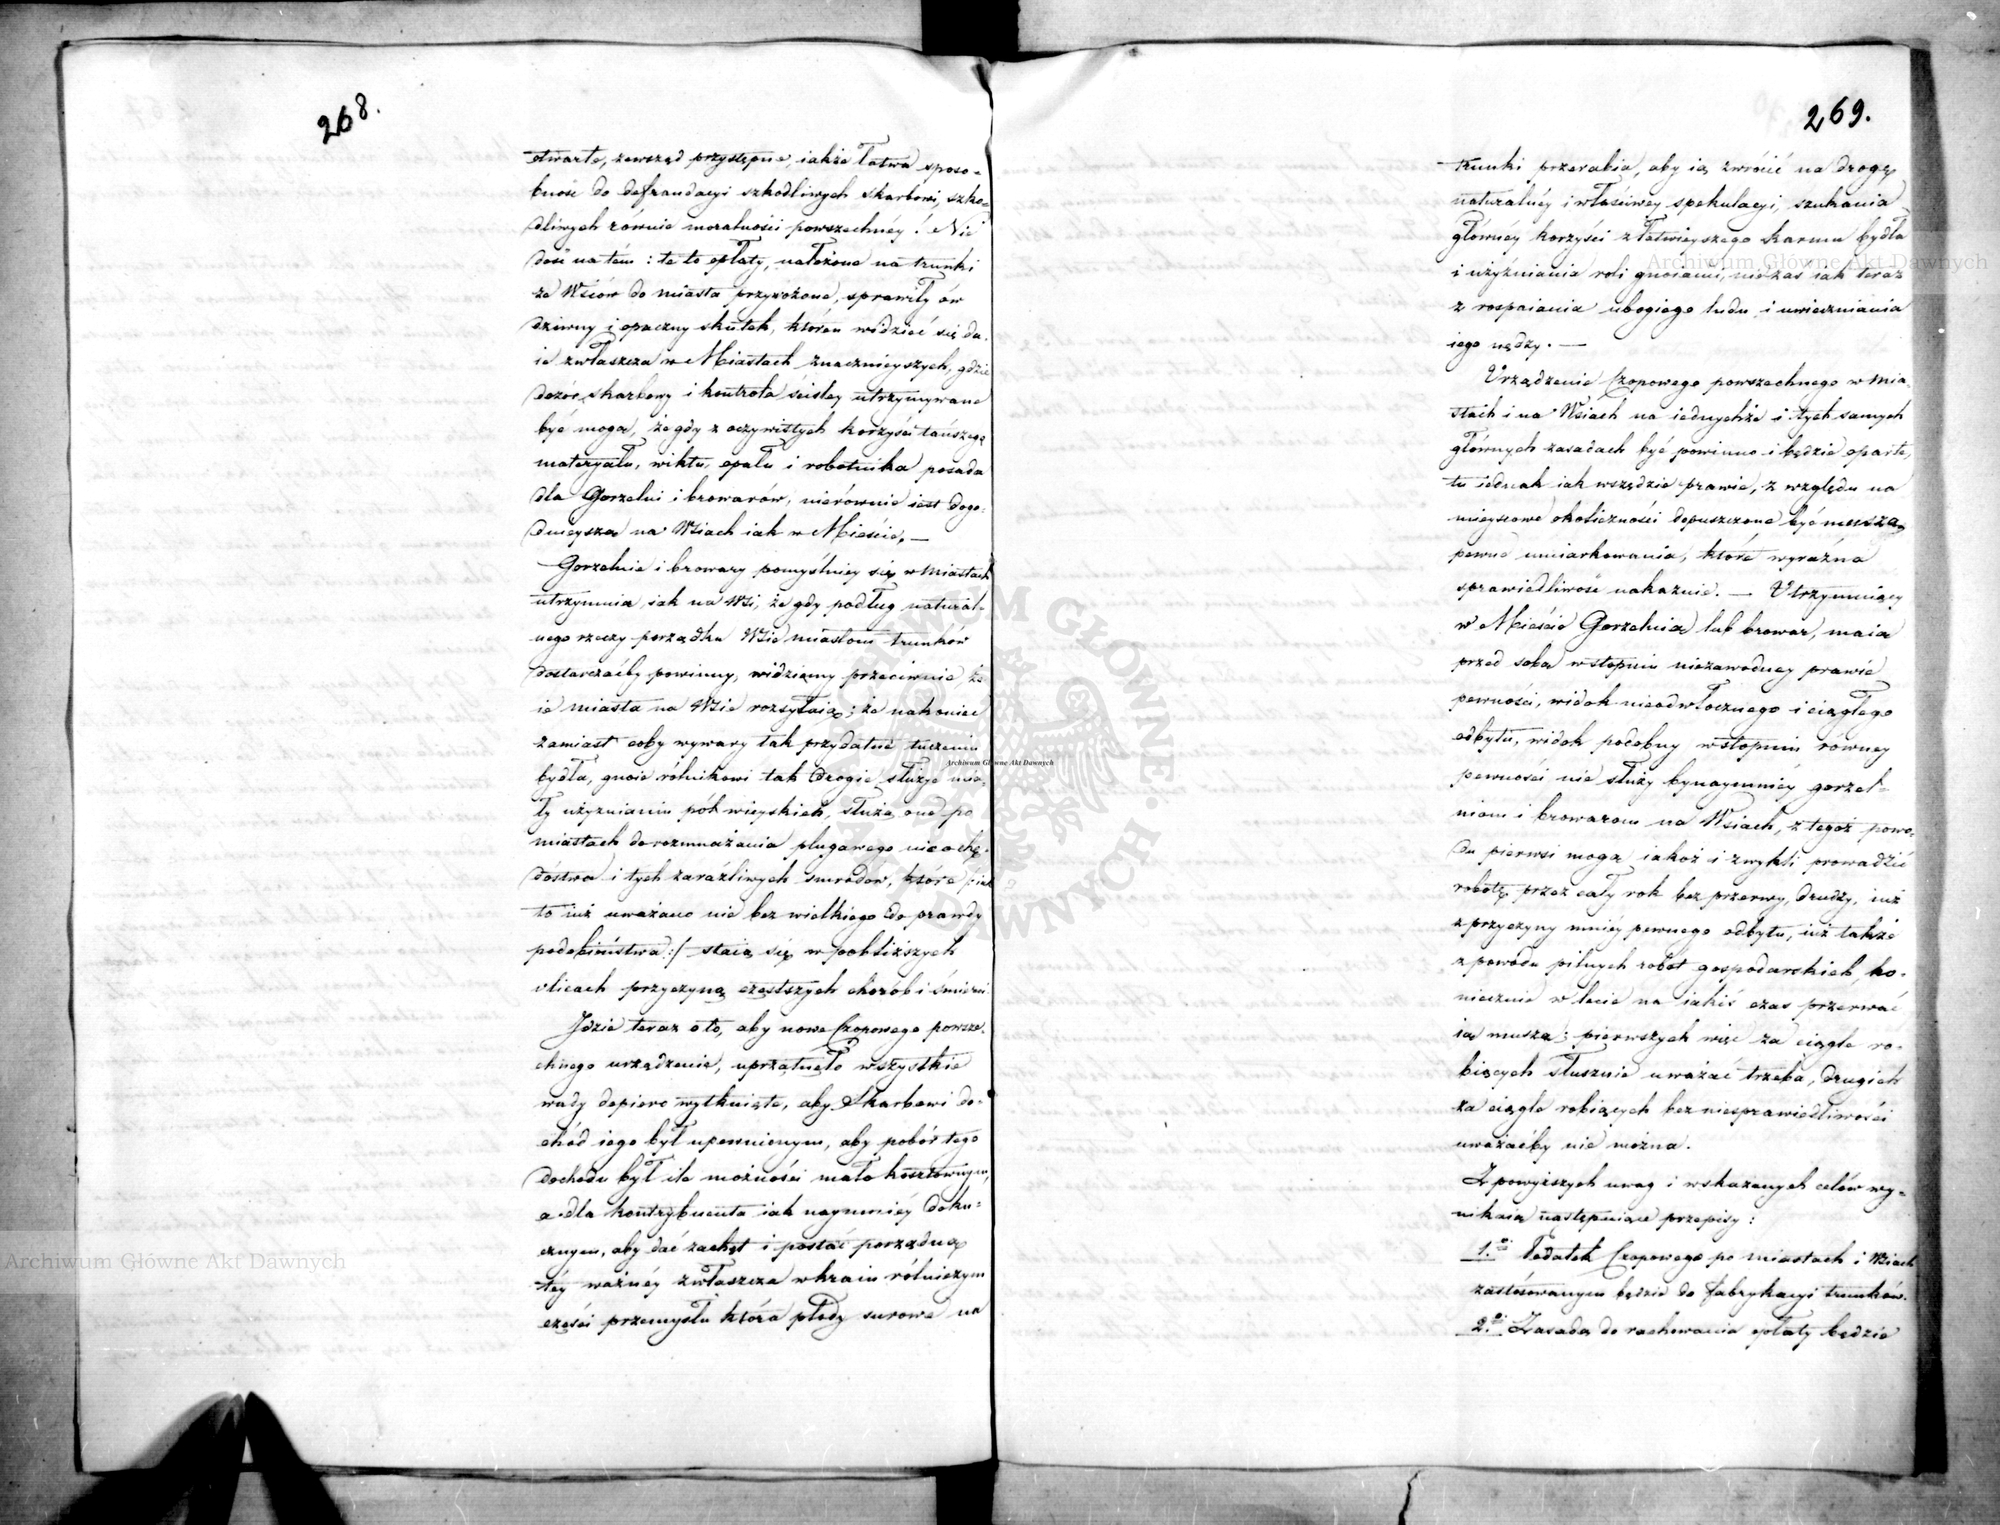 268.
otwarte, zewsząd przystępne, iakże łatwa sposo-
bność do defraudacyi szkodliwych skarbowi, szko-
dliwych równie moralności powszechnéy! Nie
dość na tém: te to opłaty, nałożone na trunki
ze Wsiów do miasta przywożone, sprawiły ów
dziwny i opaczny skutek, któren widzieć się da-
ie zwłaszcza w Miastach znacznieyszych, gdzie
dozór skarbowy i kontrola ściśley utrzymywane
być mogą, że gdy z oczywistych korzyści tańszego
materyału, wiktu, opału i robotnika posada
dla Gorzelni i browarów, nierównie iest dogo-
dnieysza na Wsiach iak w Mieście, —
Gorzelnie i browary pomyślniey się w miastach
utrzymuią, iak na Wsi, że gdy podług natural-
nego rzeczy porządku Wsie miastom trunków
dostarczaćby powinny, widziemy przeciwnie, że
ie miasta na Wsie rozsyłaią; że nakoniec
zamiast coby wywary tak przydatne tuczeniu
bydła, gnoie rólnikowi tak drogie, służyć mia-
ły użyznianiu pól wieyskich, służą one po
miastach do rozmnażania plugawego nieochę-
dóstwa i tych zaraźliwych smrodów, które /: iak
to iuż uważano nie bez wielkiego do prawdy
podobieństwa :/ staią się w pobliższych
ulicach przyczyną częstszych chorób i śmierci
Jdzie teraz o to, aby nowe Czopowego powsze-
chnego urządzenie, uprzątnęło wszystkie
wady dopiero wytknięte, aby Skarbowi do-
chód iego był upewnionym, aby pobór tego
dochodu był ile możności mało kosztownym,
a dla kontrybuenta iak naymniéy doku-
cznym, aby dać zachęt i postać porządną
téy ważnéy zwłaszcza w kraiu rólniczym
części przemysłu która płody surowe na
269.
trunki przerabia, aby ią zwrócić na drogę
naturalnéy i właściwey spekulacyi, szukania
główney korzyści z łatwieyszego karmu bydła
i użyźniania roli gnoiami, nie zas iak teraz
z rospaiania ubogiego ludu i uwieczniania
iego nędzy. —
Urządzenie Czopowego powszechnego w mia-
stach i na Wsiach na iednychże i tych samych
głównych zasadach być powinno i będzie oparte,
tu iednak iak wszędzie prawie, z względu na
mieyscowe okoliczności dopuszczone być muszą
pewne umiarkowania, które wyraźna
sprawiedliwość nakazuie. — Utrzymuiący
w Mieście Gorzelnią lub browar, maią
przed sobą w stopniu niezawodney prawie
pewności, widok nieodwłocznego i ciągłego
odbytu, widok podobny w stopniu równey
pewności nie służy bynaymniéy gorzel-
niom i browarom na Wsiach, z tegoż powo-
du pierwsi mogą iakoż i zwykli prowadzić
robotę przez cały rok bez przerwy, drudzy, iuż
z przyczyny mniéy pewnego odbytu, iuż także
z powodu pilnych robót gospodarskich, ko-
niecznie w lecie na iakiś czas przerwać
ią muszą; pierwszych więc za ciągle ro-
biących słusznie uważać trzeba, drugich
za ciągle robiących bez niesprawiedliwości
uważaćby nie można.
Z powyższych uwag i wskazanych celów wy-
nikaią następuiące przepisy:
1.o Podatek Czopowego po miastach i Wsiach
zastósowanym będzie do fabrykacyi trunków.
2.o Zasadą do rachowania opłaty będzie